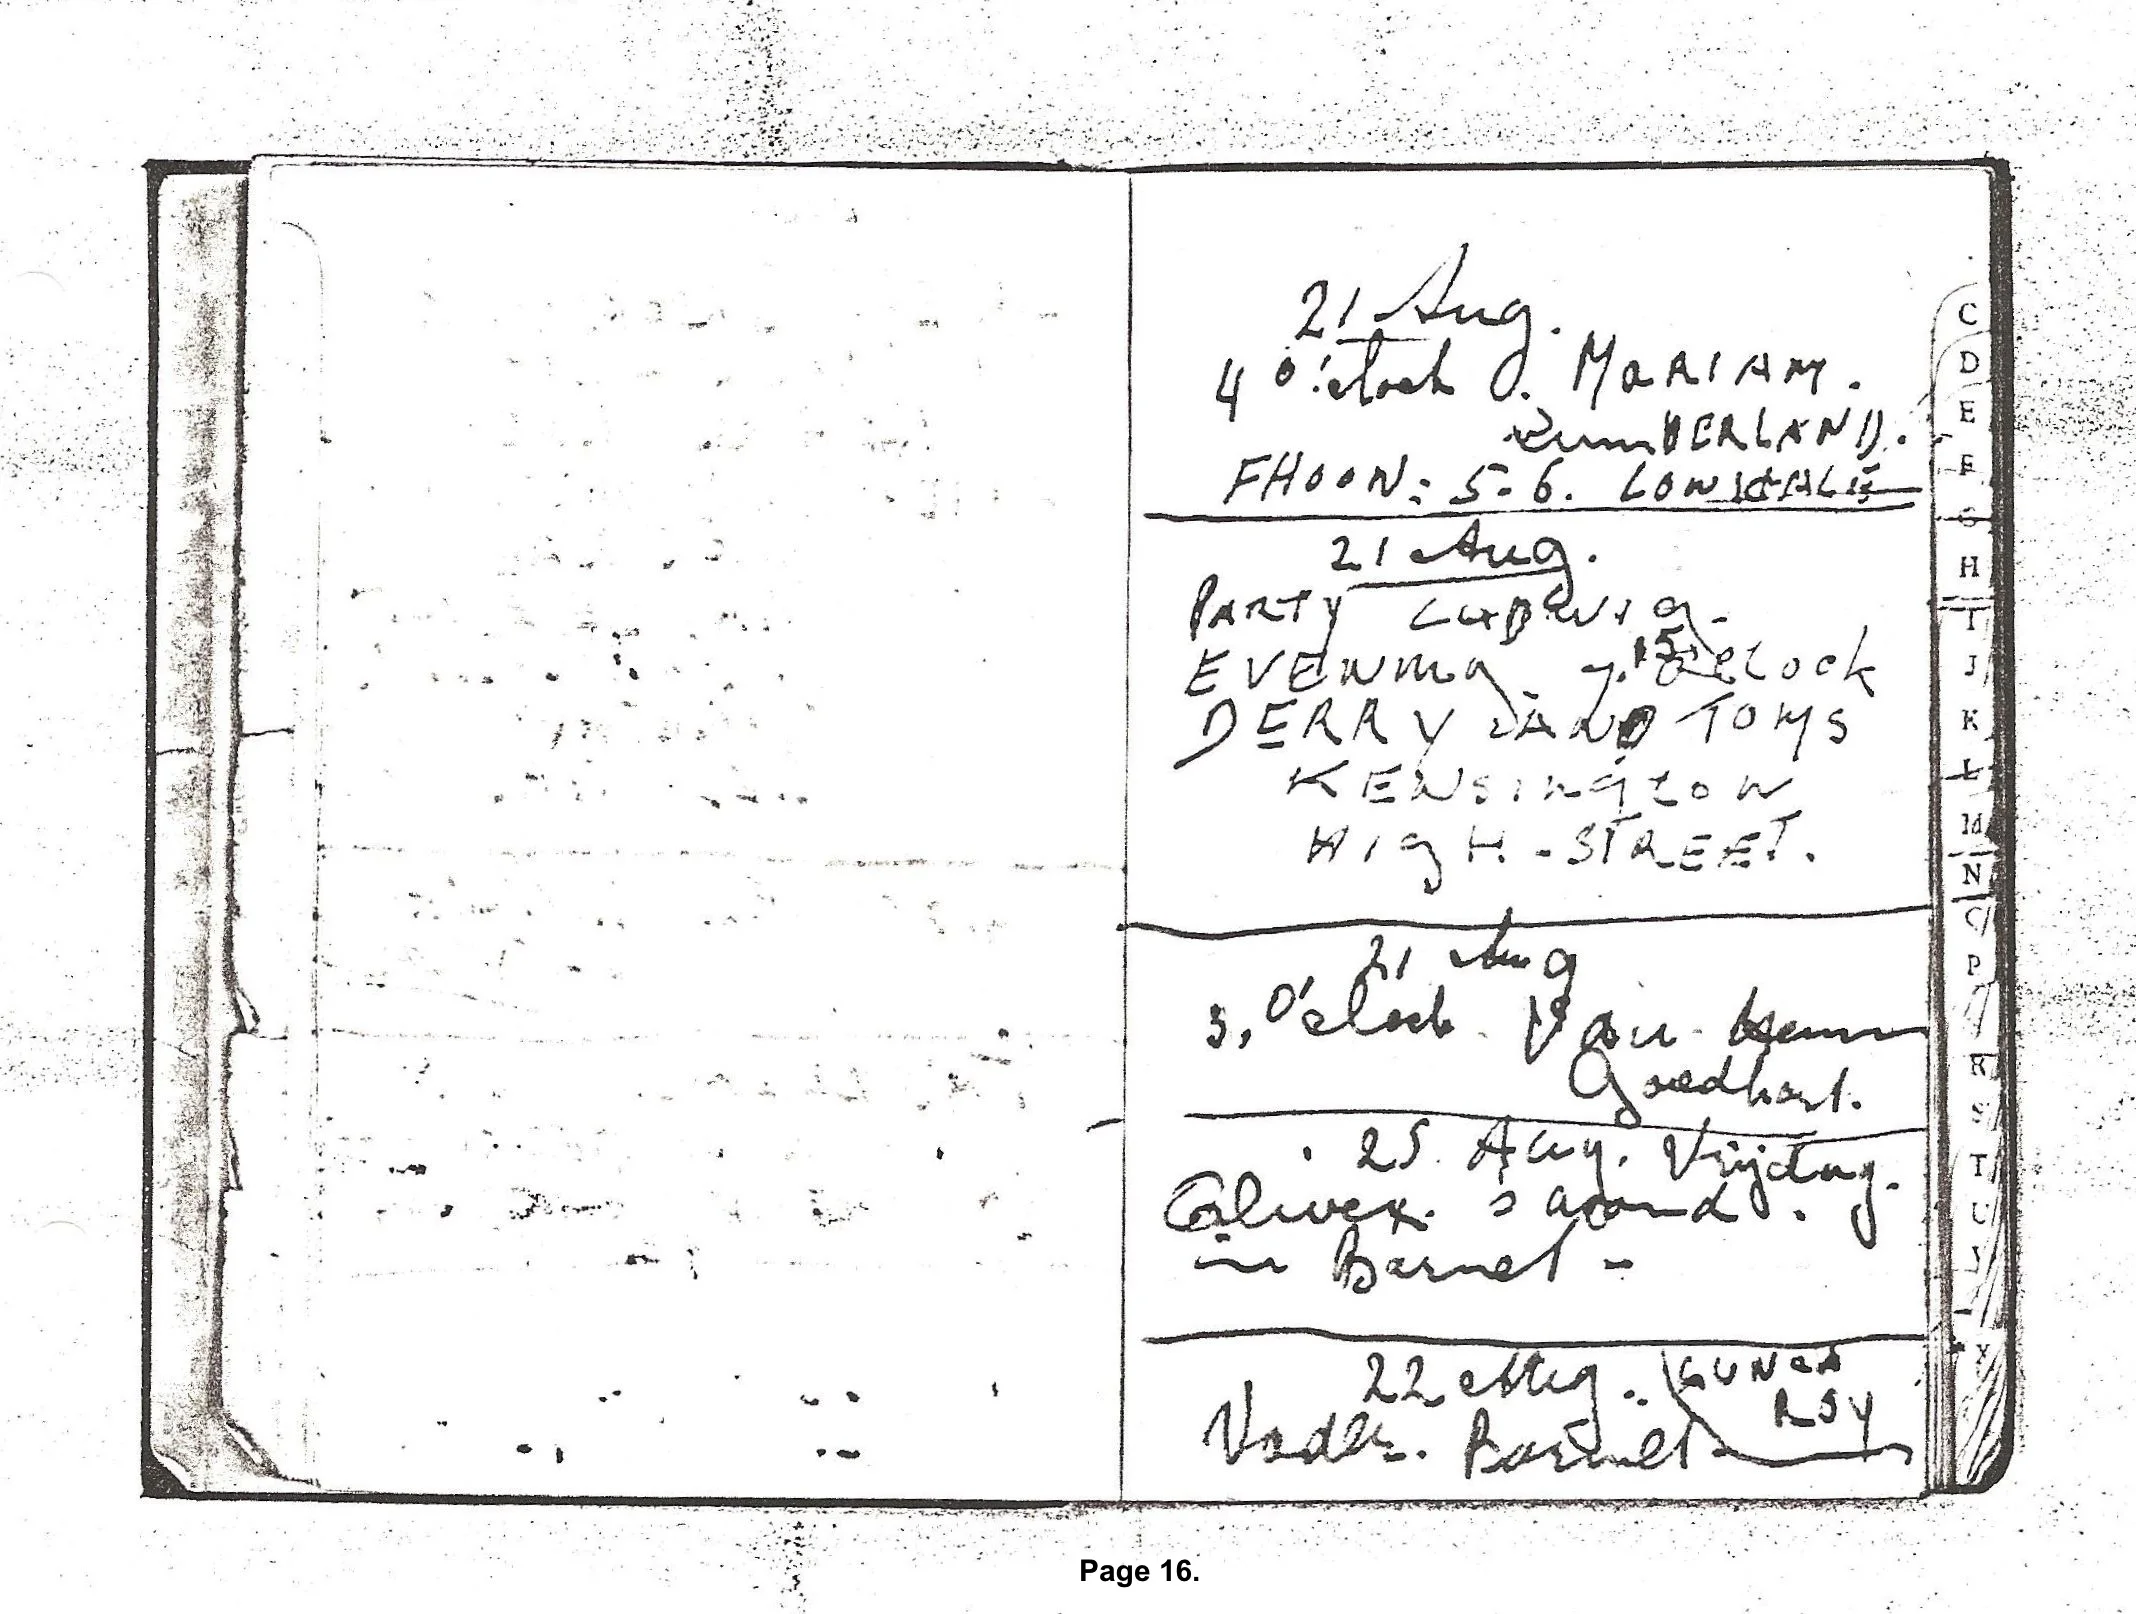 21 Aug.
4 o'clock J. MARIAM.
ZumBERLAND.
FHOON: 5-6. LONdALE
21 Aug.
PARTY LUDWIG.
EVENING. 7.15 oCLOCK
DERRY AND TOMS
KENSINGTON
HIGH-STREET.
21 Aug
3, O'clock. Van
Goedhart.
25 Aug. Vrijdag.
Oliver. 's avonds.
in Barnet -
22 Aug. LUNCH
ROY
Barnet
C
D
E
F
G
H
I
J
K
L
M
N
O
P
R
S
T
U
Page 16.